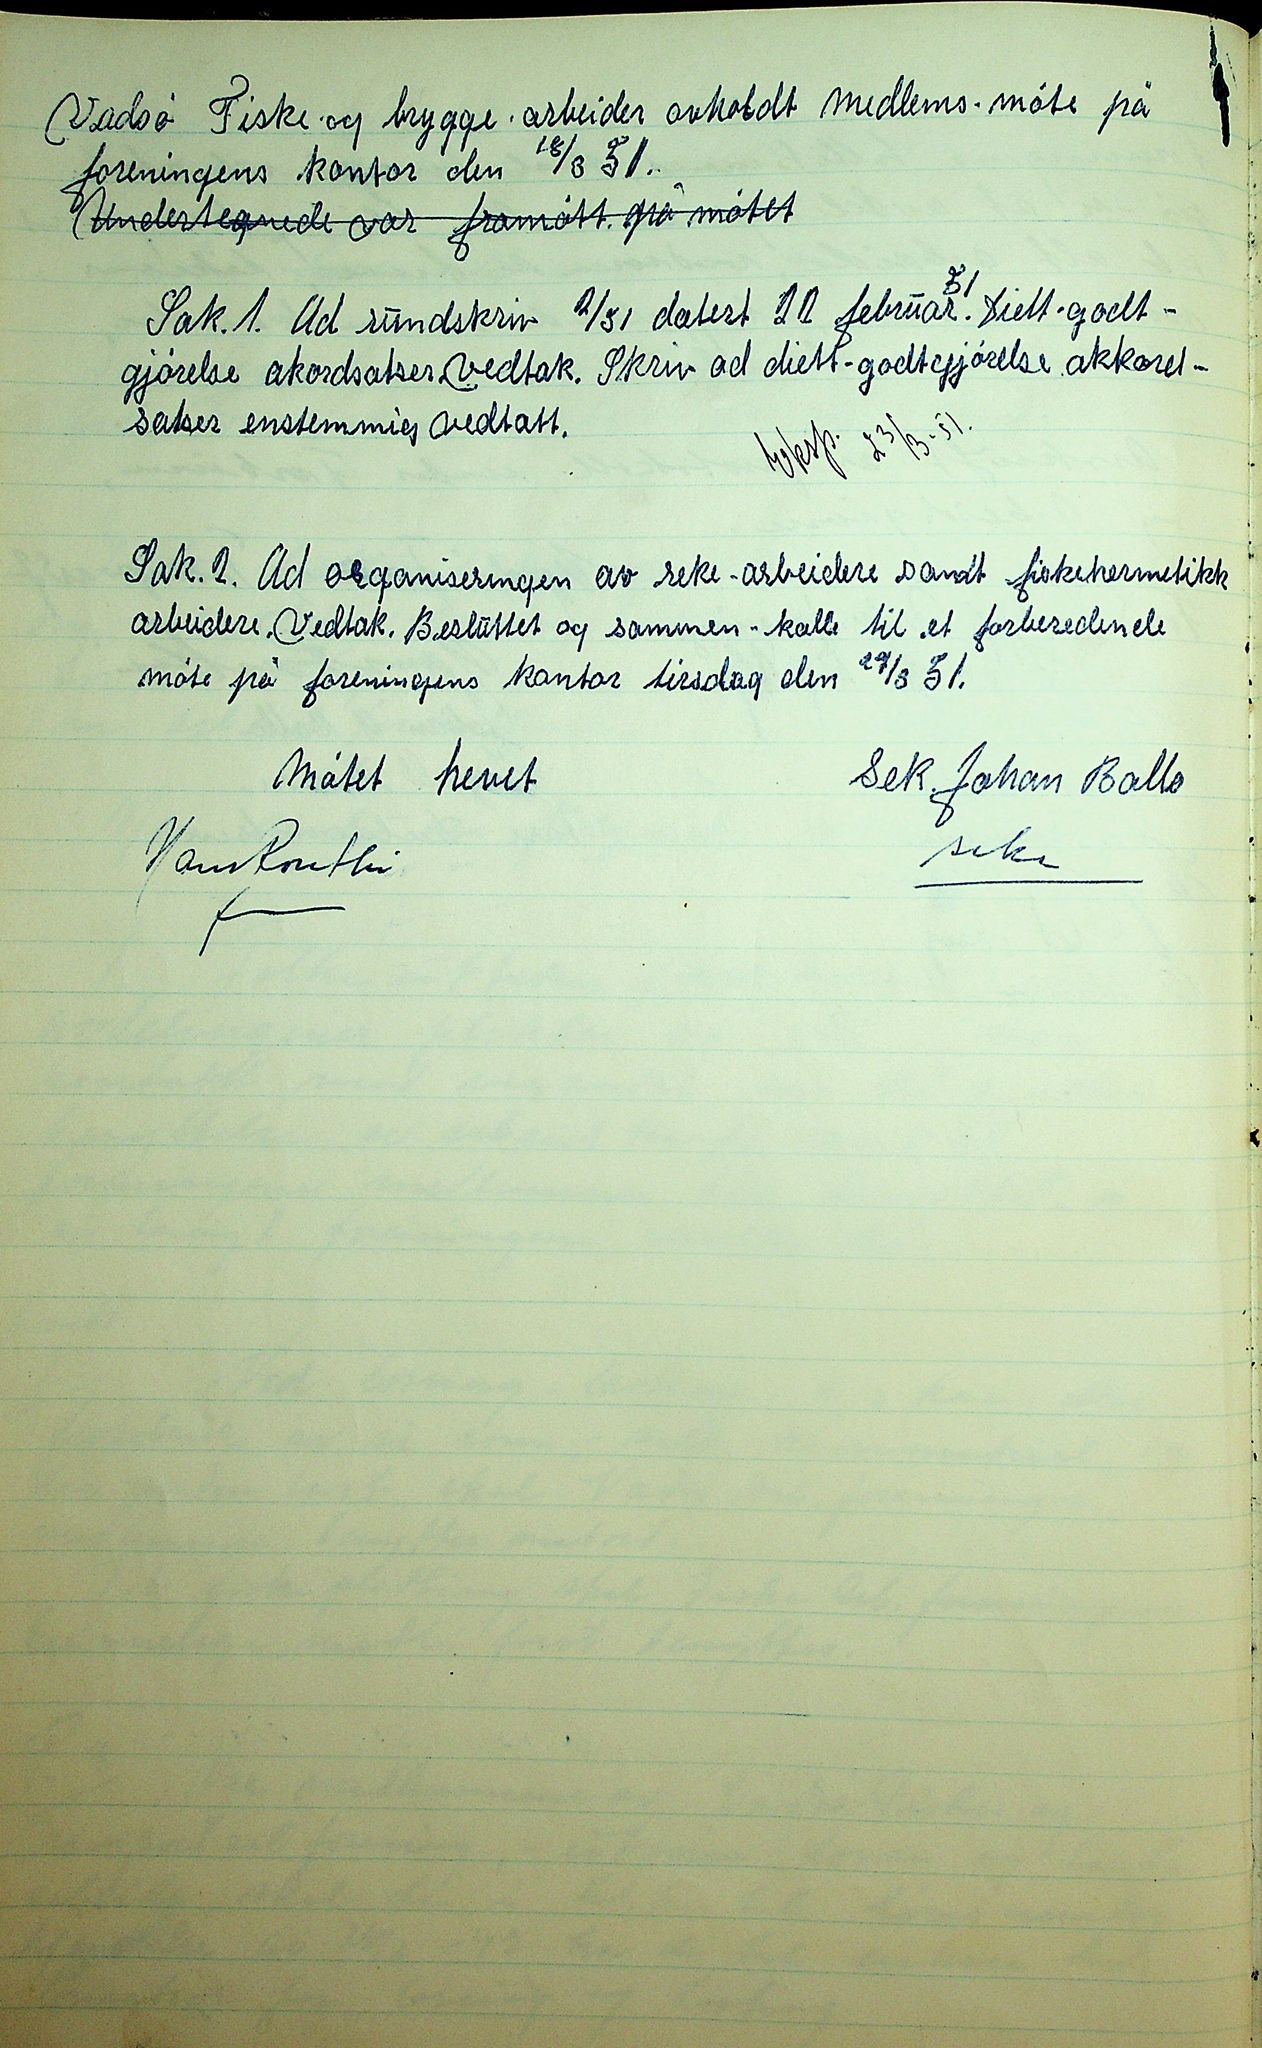 Vadsø Fiske og brygge-arbeider avholdt medlems-møte på
foreningens kontor den 18/3 51.
Undertegnede var framøtt på møtet
Sak. 1. Ad rundskriv 2/51 datert 22 februar 51. Diett-godt-
gjørelse akordsatser. Vedtak. Skriv ad diett-godtgjørelse akkord-
satser enstemmig vedtatt.
Eksp. 23/3-51.
Sak. 2. Ad organiseringen av reke-arbeidere samdt fiskehermetikk
arbeidere. Vedtak. Besluttet og sammen-kalle til et forberedende
møte på foreningens kontor tirsdag den 27/3 51.
Møtet hevet
Sek. Johan Ballo
sekr